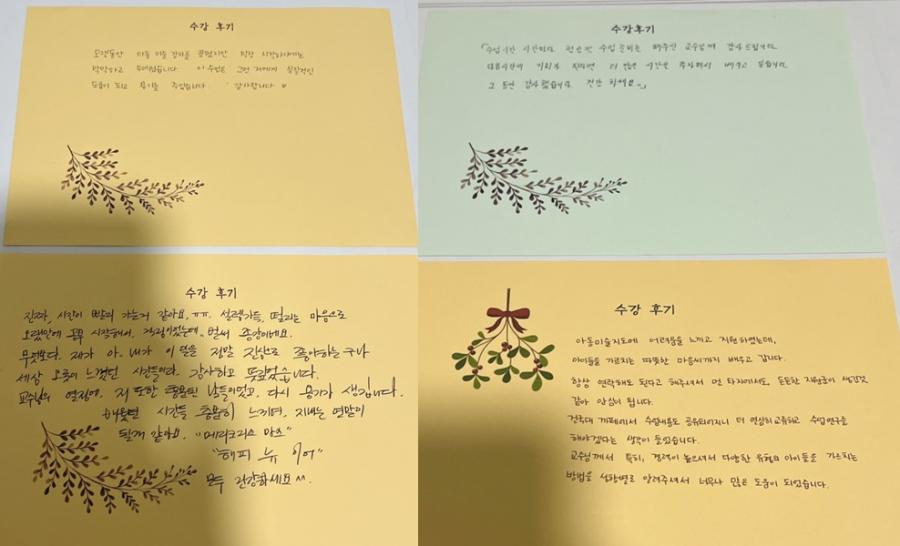 수강 후기
오랫동안 미술 이론 강의를 공부했지만 직접 시작하기에는
막막하고 두려웠습니다. 이 수업은 그런 저에게 실질적인
도움이 되고 용기를 주었습니다. 감사합니다
수강후기
수업시간 시간마다 수업 준비를 해주신 교수님께 감사드립니다.
다음시간에 기회가 된다면 더 많은 시간을 투자해서 배우고 싶습니다.
그 동안 감사했습니다. 건강 하세요.
수강 후기
진짜, 시간이 빨리 가는거 같아요, ㅠㅠ. 설렘가득, 떨리는 마음으로
오랜만에 공부 시작해서, 걱정이었는데, 벌써 종강이네요.
무엇보다. 제가 아. 내가 이 일을 정말 진심으로 좋아하는구나
세삼 오롯이 느꼈던 시간들이다. 감사하고 뜻깊었습니다.
교수님의 열정에, 저 또한 충용된 날들이었고, 다시 용기가 생깁니다.
배웠던 시간들 충분히 느끼며, 지내는 연말이
될게 같아요. "메리크리스 마스"
"해피 뉴 이어"
모두 건강하세요 ^^.
수강 후기
아동미술지도에 어려움을 느끼고 지원하였는데,
아이들을 가르치는 따뜻한 마음씨까지 배우고 갑니다.
항상 연락해도 된다고 해주셔서 먼 타지에서도, 든든한 지원군이 생긴것
같아 안심이 됩니다.
건국대 카페에서 수업내용도 공유되어지니 더 열심히 교육하고 수업연구를
해야겠다는 생각이 들었습니다.
교수님께서 특히, 경력이 높으셔서 다양한 유형의 아이들을 가르치는
방법을 성향별로 알려주셔서 너무나 많은 도움이 되었습니다.